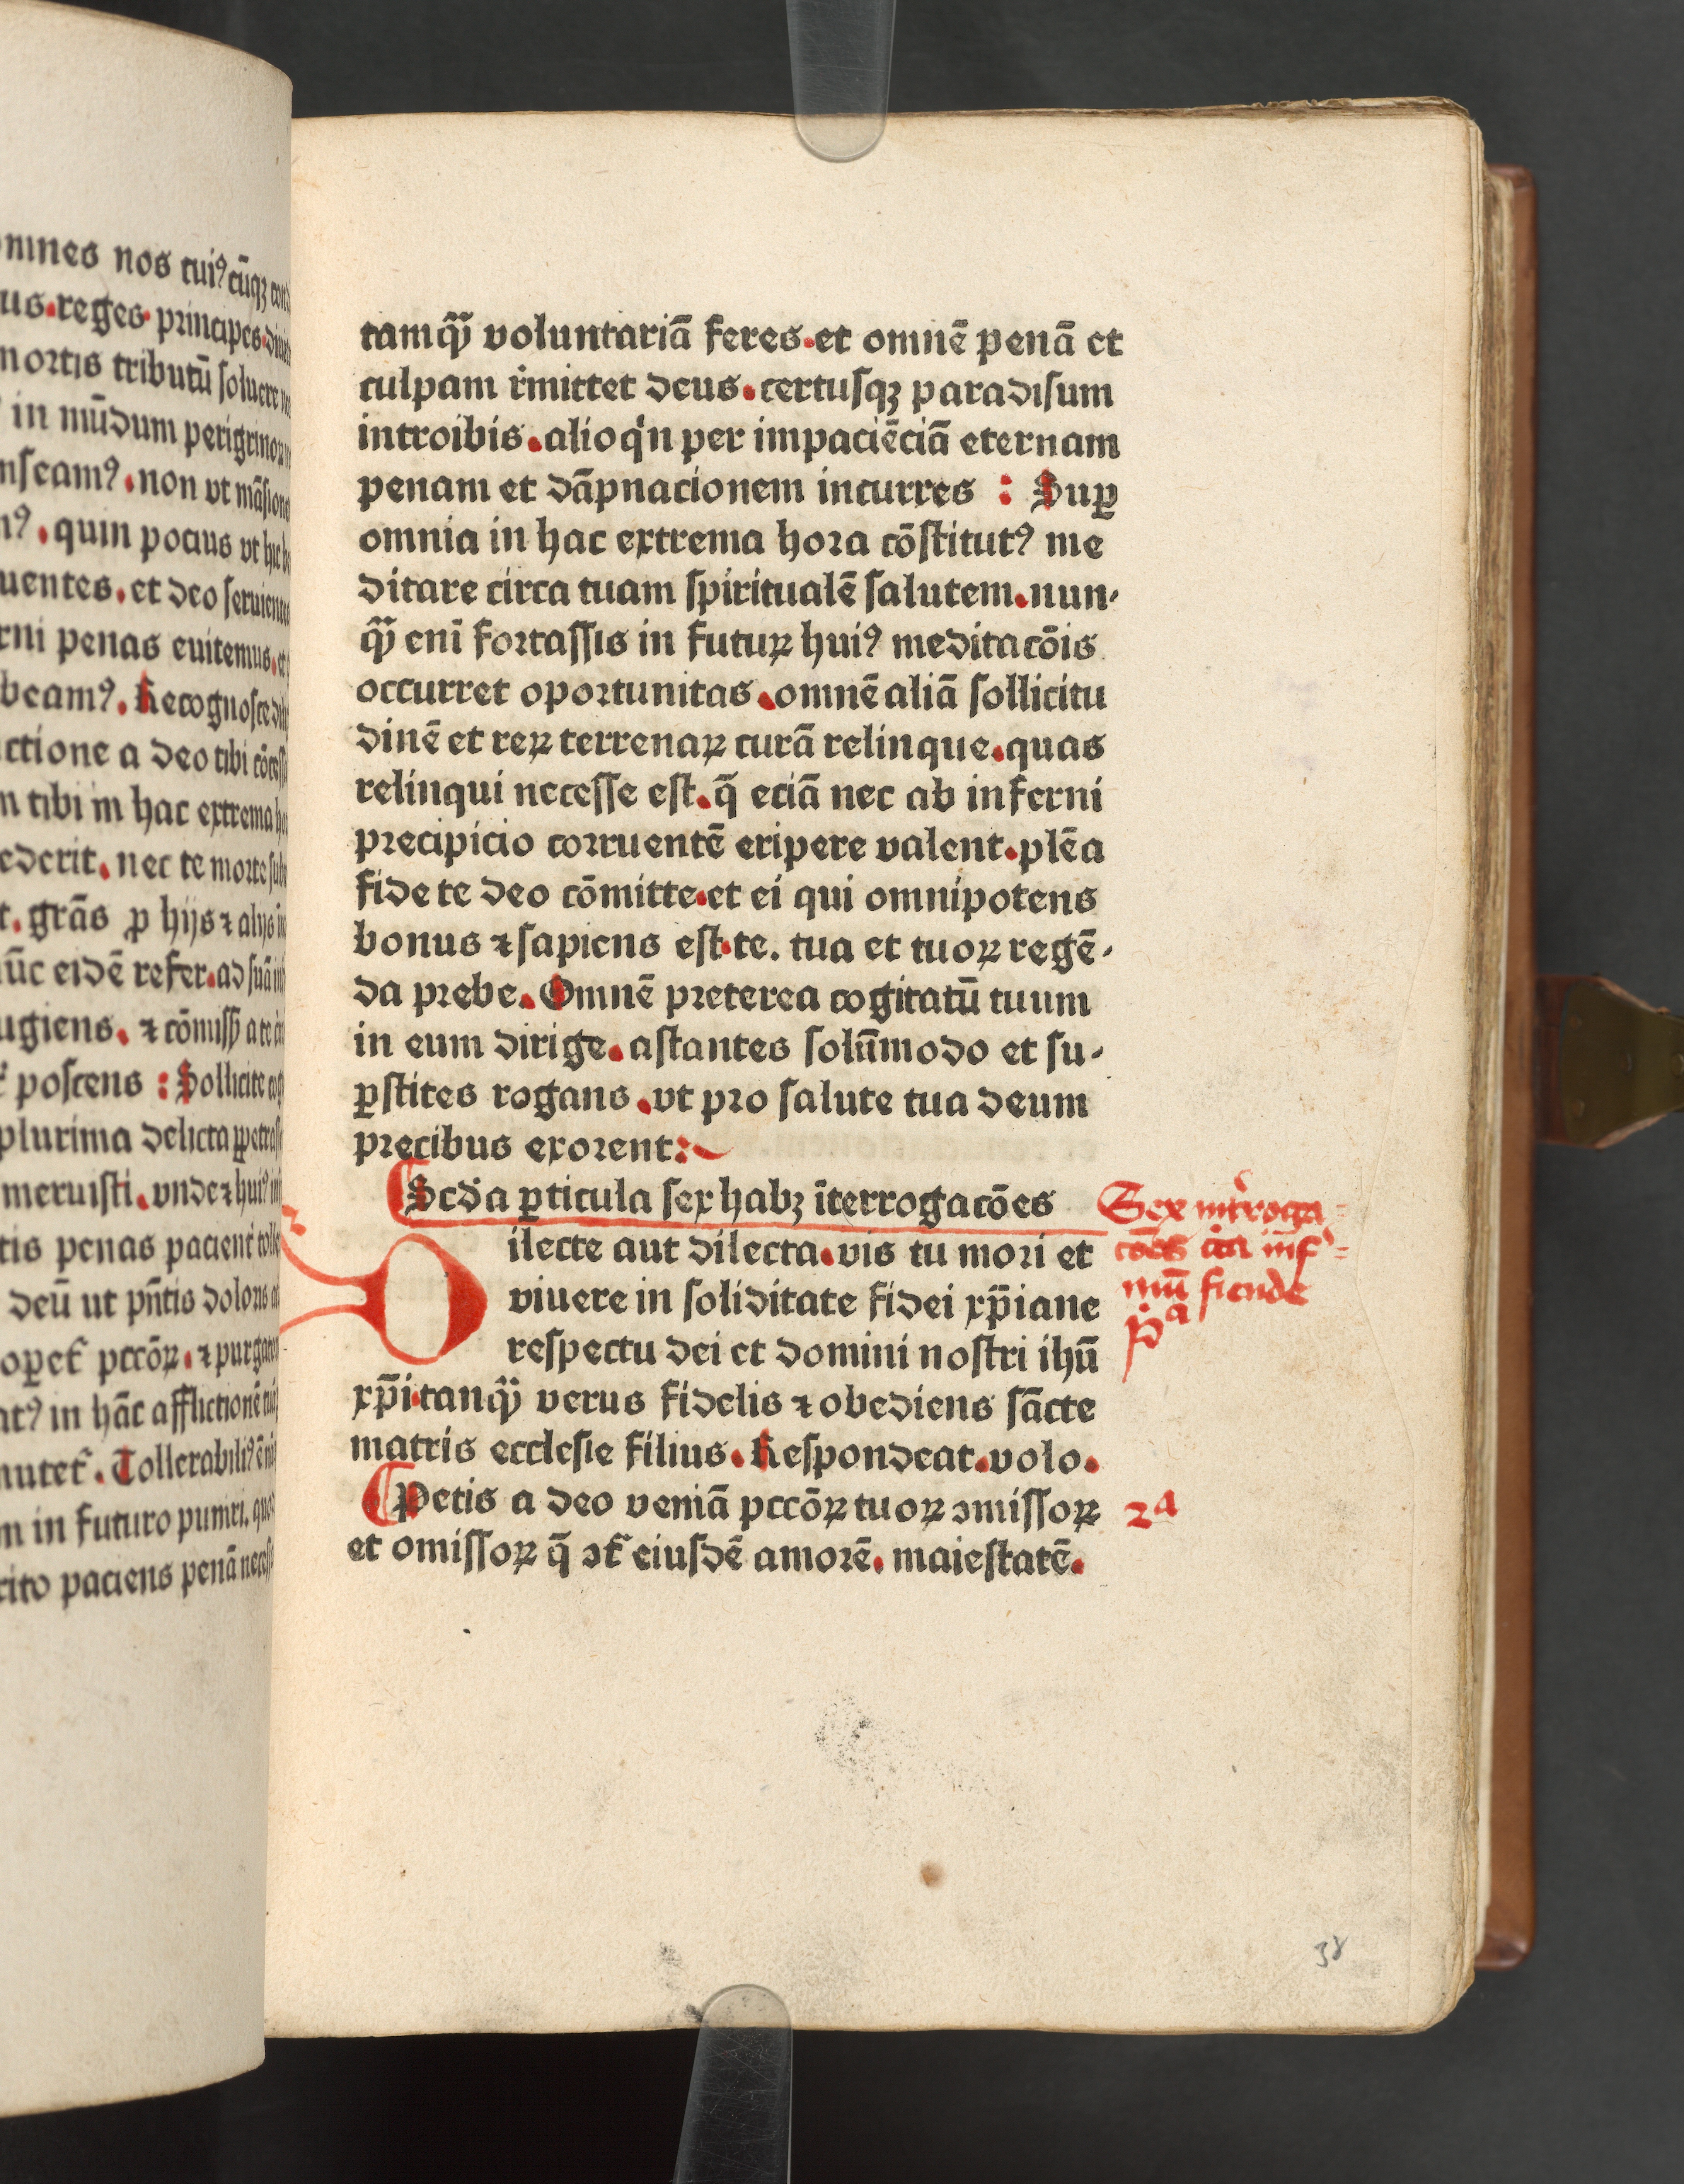 omnes nos tuiꝰ cūqꝫ
us.reges.principes.
mortis tributū soluere
in mūdum perigrinoꝝ
nſeamꝰ.non vt māſione
mꝰ.quin pocius vt hic
uentes.et deo ſeruientes
rni penas euitemus.et
beamꝰ.Recognoſce
ctione a deo tibi cōceſſ
m tibi in hac extrema
ederit.nec te morte
t.grās ꝓ hijs ⁊ alijs
ūc eidē refer.ad ſuā
ugiens.⁊ cōmiſſ a te
poſcens : Sollicite
plurima delicta
meruiſti.vnde ⁊ huiꝰ
tis penas pacient tolle
deū ut pn̄tis doloris
opet pccōꝝ.⁊ purgacō
atꝰ in hāc afflictionē
mutet.Tollerabiliꝰ ē
m in futuro puniri.
rito paciens penā neceſſ
tamqͣꝫ voluntariā feres.et omnē penā et
culpam r̄mittet deus.certuſqꝫ paradiſum
introibis.alioqͥn per impaciēciā eternam
penam et dāpnacionem incurres : Suꝑ
omnia in hac extrema hora cōſtitutꝰ me
ditare circa tuam ſpiritualē ſalutem.nun-
qͣꝫ eni fortaſſis in futuꝝ huiꝰ meditacōis
occurret oportunitas.omnē aliā ſollicitu
dinē et reꝝ terrenaꝝ curā relinque.quas
relinqui neceſſe eſt.q̄ eciā nec ab inferni
precipicio corruentē eripere valent.plēa
fide te deo cōmitte.et ei qui omnipotens
bonus ⁊ ſapiens eſt.te. tua et tuoꝝ regē-
da prebe.Omnē preterea cogitatū tuum
in eum dirige.aſtantes ſolūmodo et ſu-
ꝑſtites rogans.vt pro ſalute tua deum
precibus exorent:
Scd̄a ꝑticula ſex habꝫ īterrogacōes
Dilecte aut dilecta.vis tu mori et
viuere in ſoliditate fidei xp̄iane
reſpectu dei et domini noſtri ihū
xp̄i.tanqͣꝫ verus fidelis ⁊ obediens ſācte
matris eccleſie filius.Reſpondeat.volo.
Petis a deo veniā pccōꝝ tuoꝝ ꝯmiſſoꝝ
et omiſſoꝝ q̄ ꝯt̄ eiuſdē amorē.maieſtatē.
Sex int'roga=
cōes c̄ca inf'=
mū fiende
pͣ
2ͣ
38